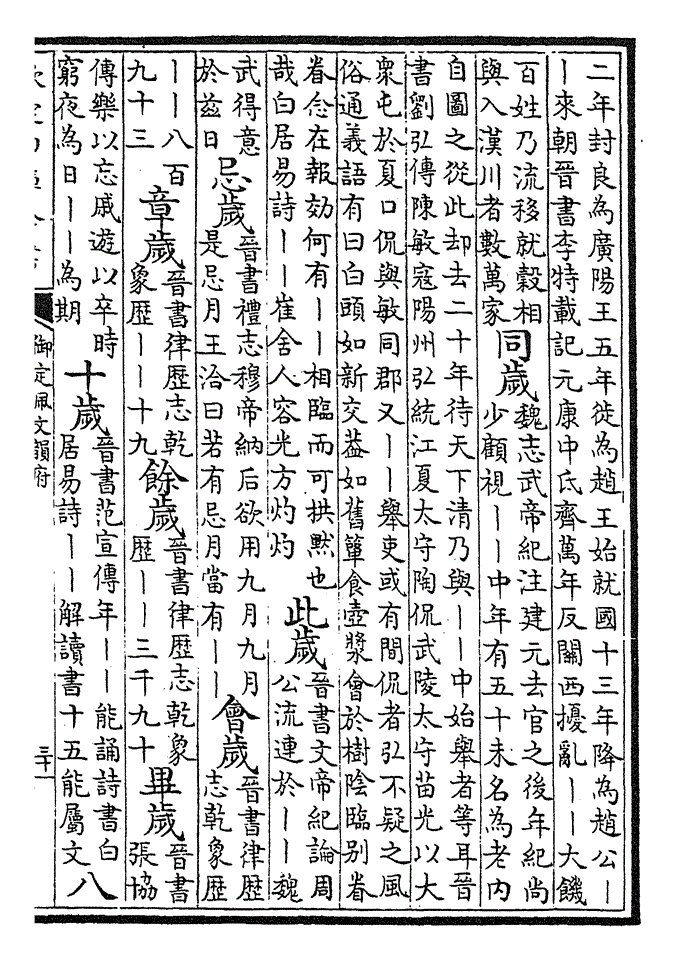 二年封良為廣陽王五年徙為趙王始就國十三年降為趙公｜
｜來朝晉書李特載記元康中氐齊萬年反關西擾亂｜｜大饑
百姓乃流移就穀相
與入漢川者數萬家
同歲
魏志武帝紀注建元去官之後年紀尚
少顧視｜｜中年有五十未名為老内
自圖之從此却去二十年待天下清乃與｜｜中始舉者等耳晉
書劉弘傳陳敏寇陽州弘統江夏太守陶侃武陵太守苗光以大
衆屯於夏口侃與敏同郡又｜｜舉吏或有間侃者弘不疑之風
俗通義語有曰白頭如新交葢如舊簞食壺漿會於樹陰臨别眷
眷念在報効何有｜｜相臨而可拱黙也
哉白居易詩｜｜崔舍人容光方灼灼
此歲
晉書文帝紀論周
公流連於｜｜魏
武得意
於兹日
忌歲
晉書禮志穆帝納后欲用九月九月
是忌月王洽曰若有忌月當有｜｜
會歲
晉書律歴
志乾象歴
｜｜八百
九十三
章歲
晉書律歴志乾
象歴｜｜十九
餘歲
晉書律歴志乾象
歴｜｜三千九十
畢歲
晉書
張協
傳樂以忘戚遊以卒時
窮夜為日｜｜為期
十歲
晉書范宣傳年｜｜能誦詩書白
居易詩｜｜解讀書十五能屬文
八
御定佩文韻府